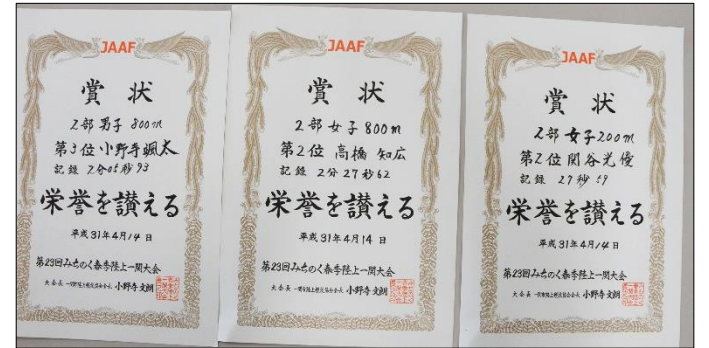 JAAF
賞状
2部 男子 800m
第3位 小野寺颯太
記録 2分05秒93
栄誉を讃える
平成31年4月14日
第23回みちのく春季陸上一関大会
大会長 小野寺文朗
JAAF
賞状
2部 女子 800m
第2位 高橋 知広
記録 2分27秒62
栄誉を讃える
平成31年4月14日
第23回みちのく春季陸上一関大会
大会長 小野寺文朗
JAAF
賞状
2部 女子 200m
第2位 関谷光優
記録 27秒59
栄誉を讃える
平成31年4月14日
第23回みちのく春季陸上一関大会
大会長 小野寺文朗